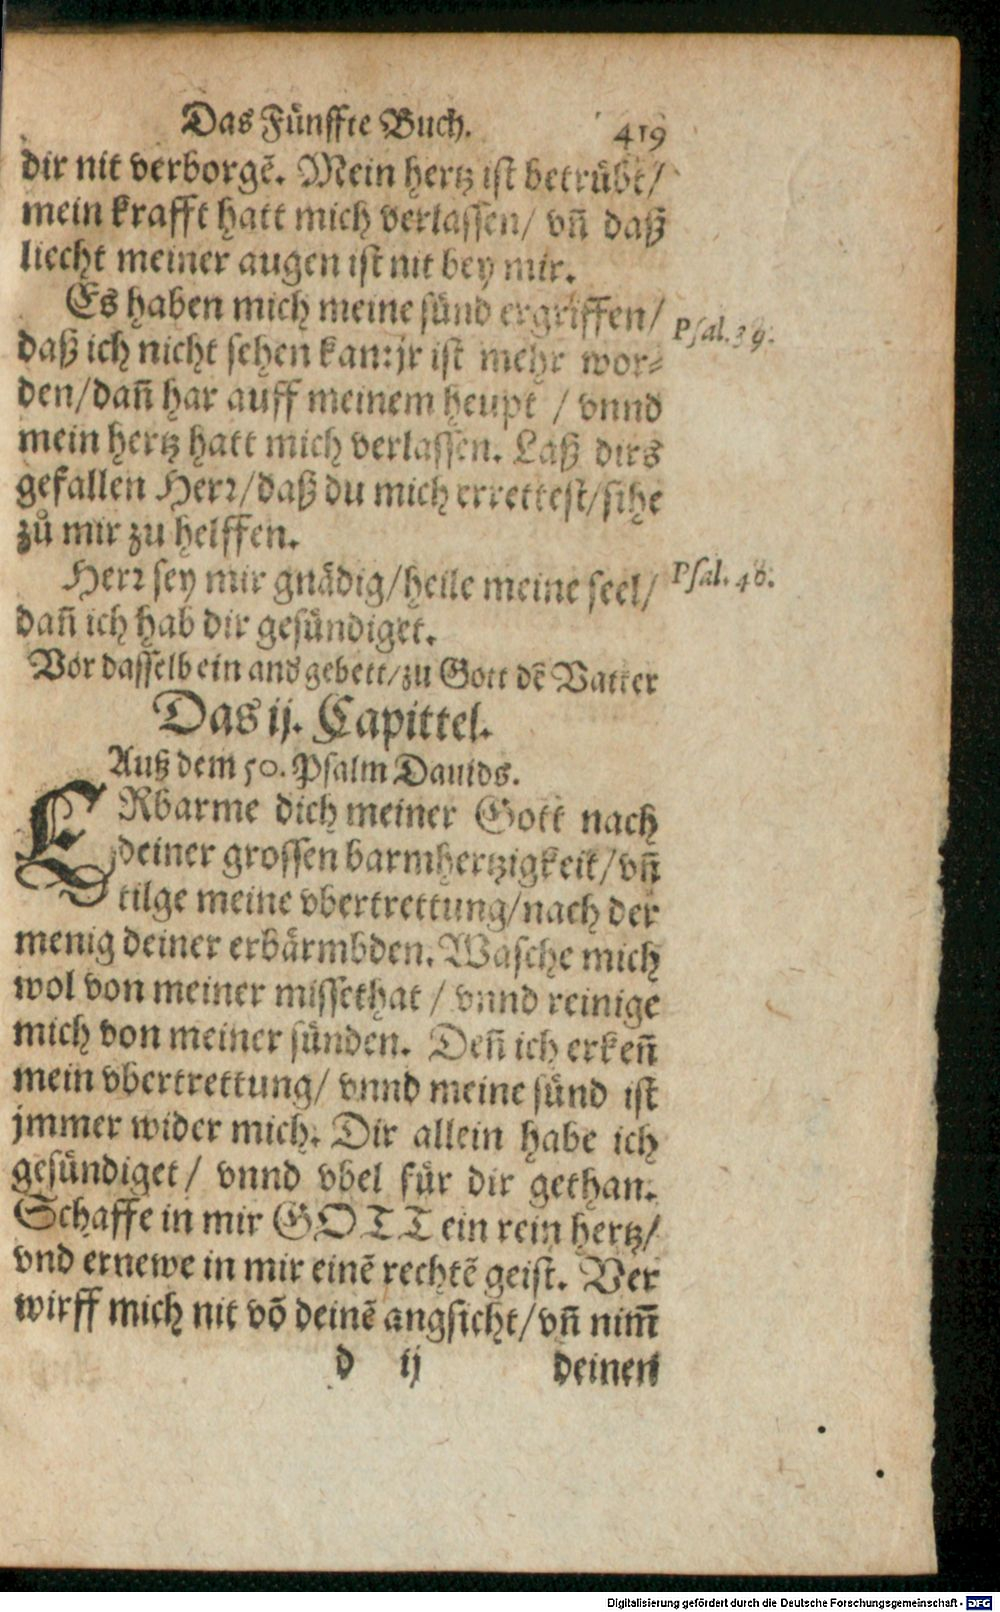 Das Fünffte Buch. 419
dir nit verborgē. Mein hertz ist betrübt/
mein krafft hatt mich verlassen/ vñ daß
liecht meiner augen ist nit bey mir.
Es haben mich meine sünd ergriffen/ Psal. 39.
daß ich nicht sehen kan: jr ist mehr wor-
den/dañ har auff meinem heupt / vnnd
mein hertz hatt mich verlassen. Laß dirs
gefallen Herr/daß du mich errettest/sihe
zů mir zu helffen.
Herr sey mir gnädig/heile meine seel/ Psal. 40.
dañ ich hab dir gesündiget.
Vor dasselb ein ands gebett/zu Gott dē Vatter
Das ij. Capittel.
Auß dem 50. Psalm Dauids.
ERbarme dich meiner Gott nach
deiner grossen barmhertzigkeit/vñ
tilge meine vbertrettung/nach der
menig deiner erbärmbden. Wasche mich
wol von meiner missethat / vnnd reinige
mich von meiner sünden. Deñ ich erkeñ
mein vbertrettung/ vnnd meine sünd ist
jmmer wider mich. Dir allein habe ich
gesündiget/ vnnd vbel für dir gethan.
Schaffe in mir GOTT ein rein hertz/
vnd ernewe in mir einē rechtē geist. Ver
wirff mich nit võ deinē angsicht/vñ nim̃
d ij deinen
Digitalisierung gefördert durch die Deutsche Forschungsgemeinschaft - DFG